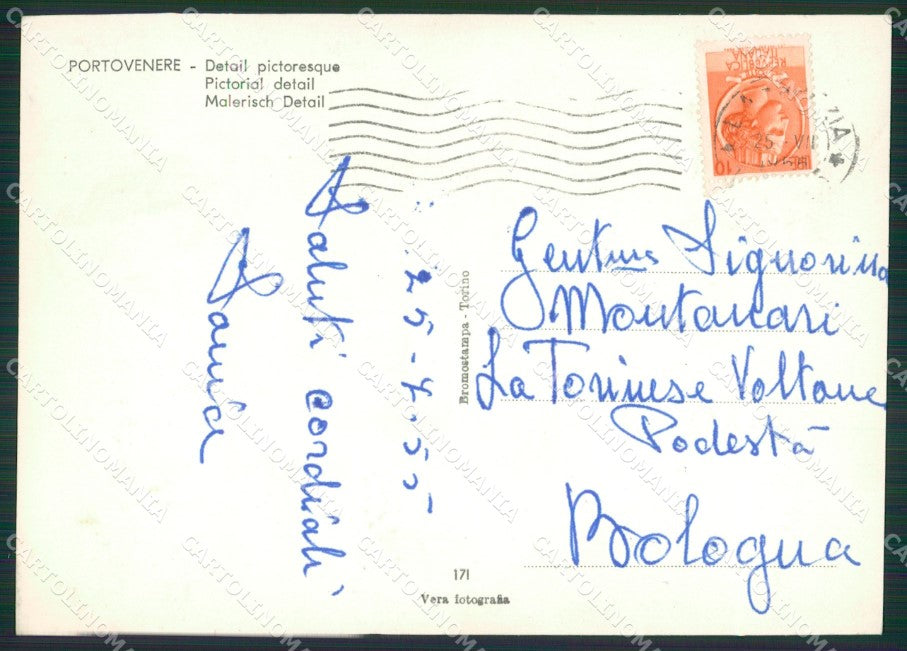 PORTOVENERE - Detail pictoresque
Pictorial detail
Malerisch Detail
REPUBBLICA
ITALIANA
10
LA SPEZIA
25 - VII
25-7-55
Saluti cordiali
Bromostampa - Torino
Gent.ma Signorina
Montanari
La Torinese Voltone
Podestà
Bologna
171
Vera fotografia
CARTOLINOMANIA